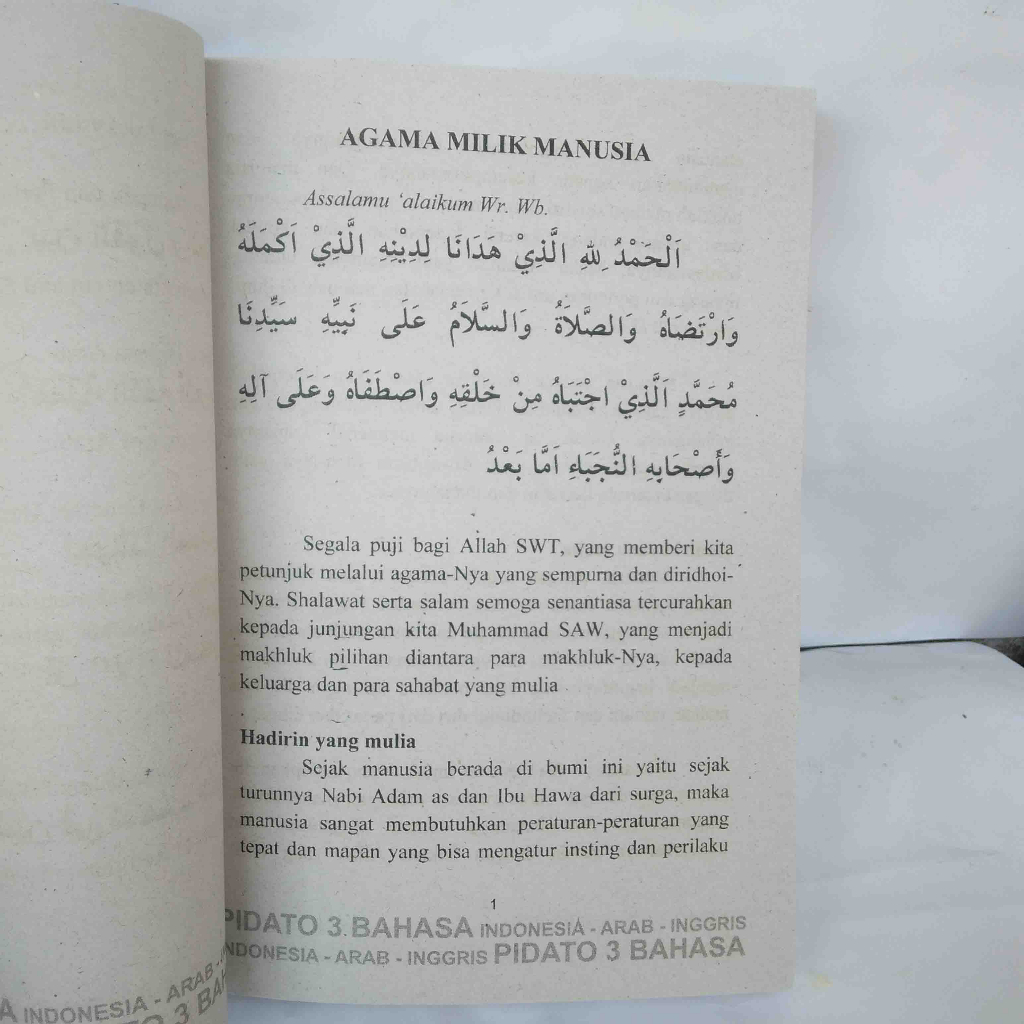 AGAMA MILIK MANUSIA
Assalamu 'alaikum Wr. Wb.
اَلْحَمْدُ لِلهِ الَّذِيْ هَدَانَا لِدِيْنِهِ الَّذِيْ اَكْمَلَهُ
وَارْتَضَاهُ وَالصَّلَاةُ وَالسَّلَامُ عَلَى نَبِيِّهِ سَيِّدِنَا
مُحَمَّدٍ اَلَّذِيْ اجْتَبَاهُ مِنْ خَلْقِهِ وَاصْطَفَاهُ وَعَلَى آلِهِ
وَأَصْحَابِهِ النُّجَبَاءِ اَمَّا بَعْدُ
Segala puji bagi Allah SWT, yang memberi kita
petunjuk melalui agama-Nya yang sempurna dan diridhoi-
Nya. Shalawat serta salam semoga senantiasa tercurahkan
kepada junjungan kita Muhammad SAW, yang menjadi
makhluk pilihan diantara para makhluk-Nya, kepada
keluarga dan para sahabat yang mulia
Hadirin yang mulia
Sejak manusia berada di bumi ini yaitu sejak
turunnya Nabi Adam as dan Ibu Hawa dari surga, maka
manusia sangat membutuhkan peraturan-peraturan yang
tepat dan mapan yang bisa mengatur insting dan perilaku
1
PIDATO 3 BAHASA INDONESIA - ARAB - INGGRIS
INDONESIA - ARAB - INGGRIS PIDATO 3 BAHASA
A INDONESIA - ARAB -
3 BAH